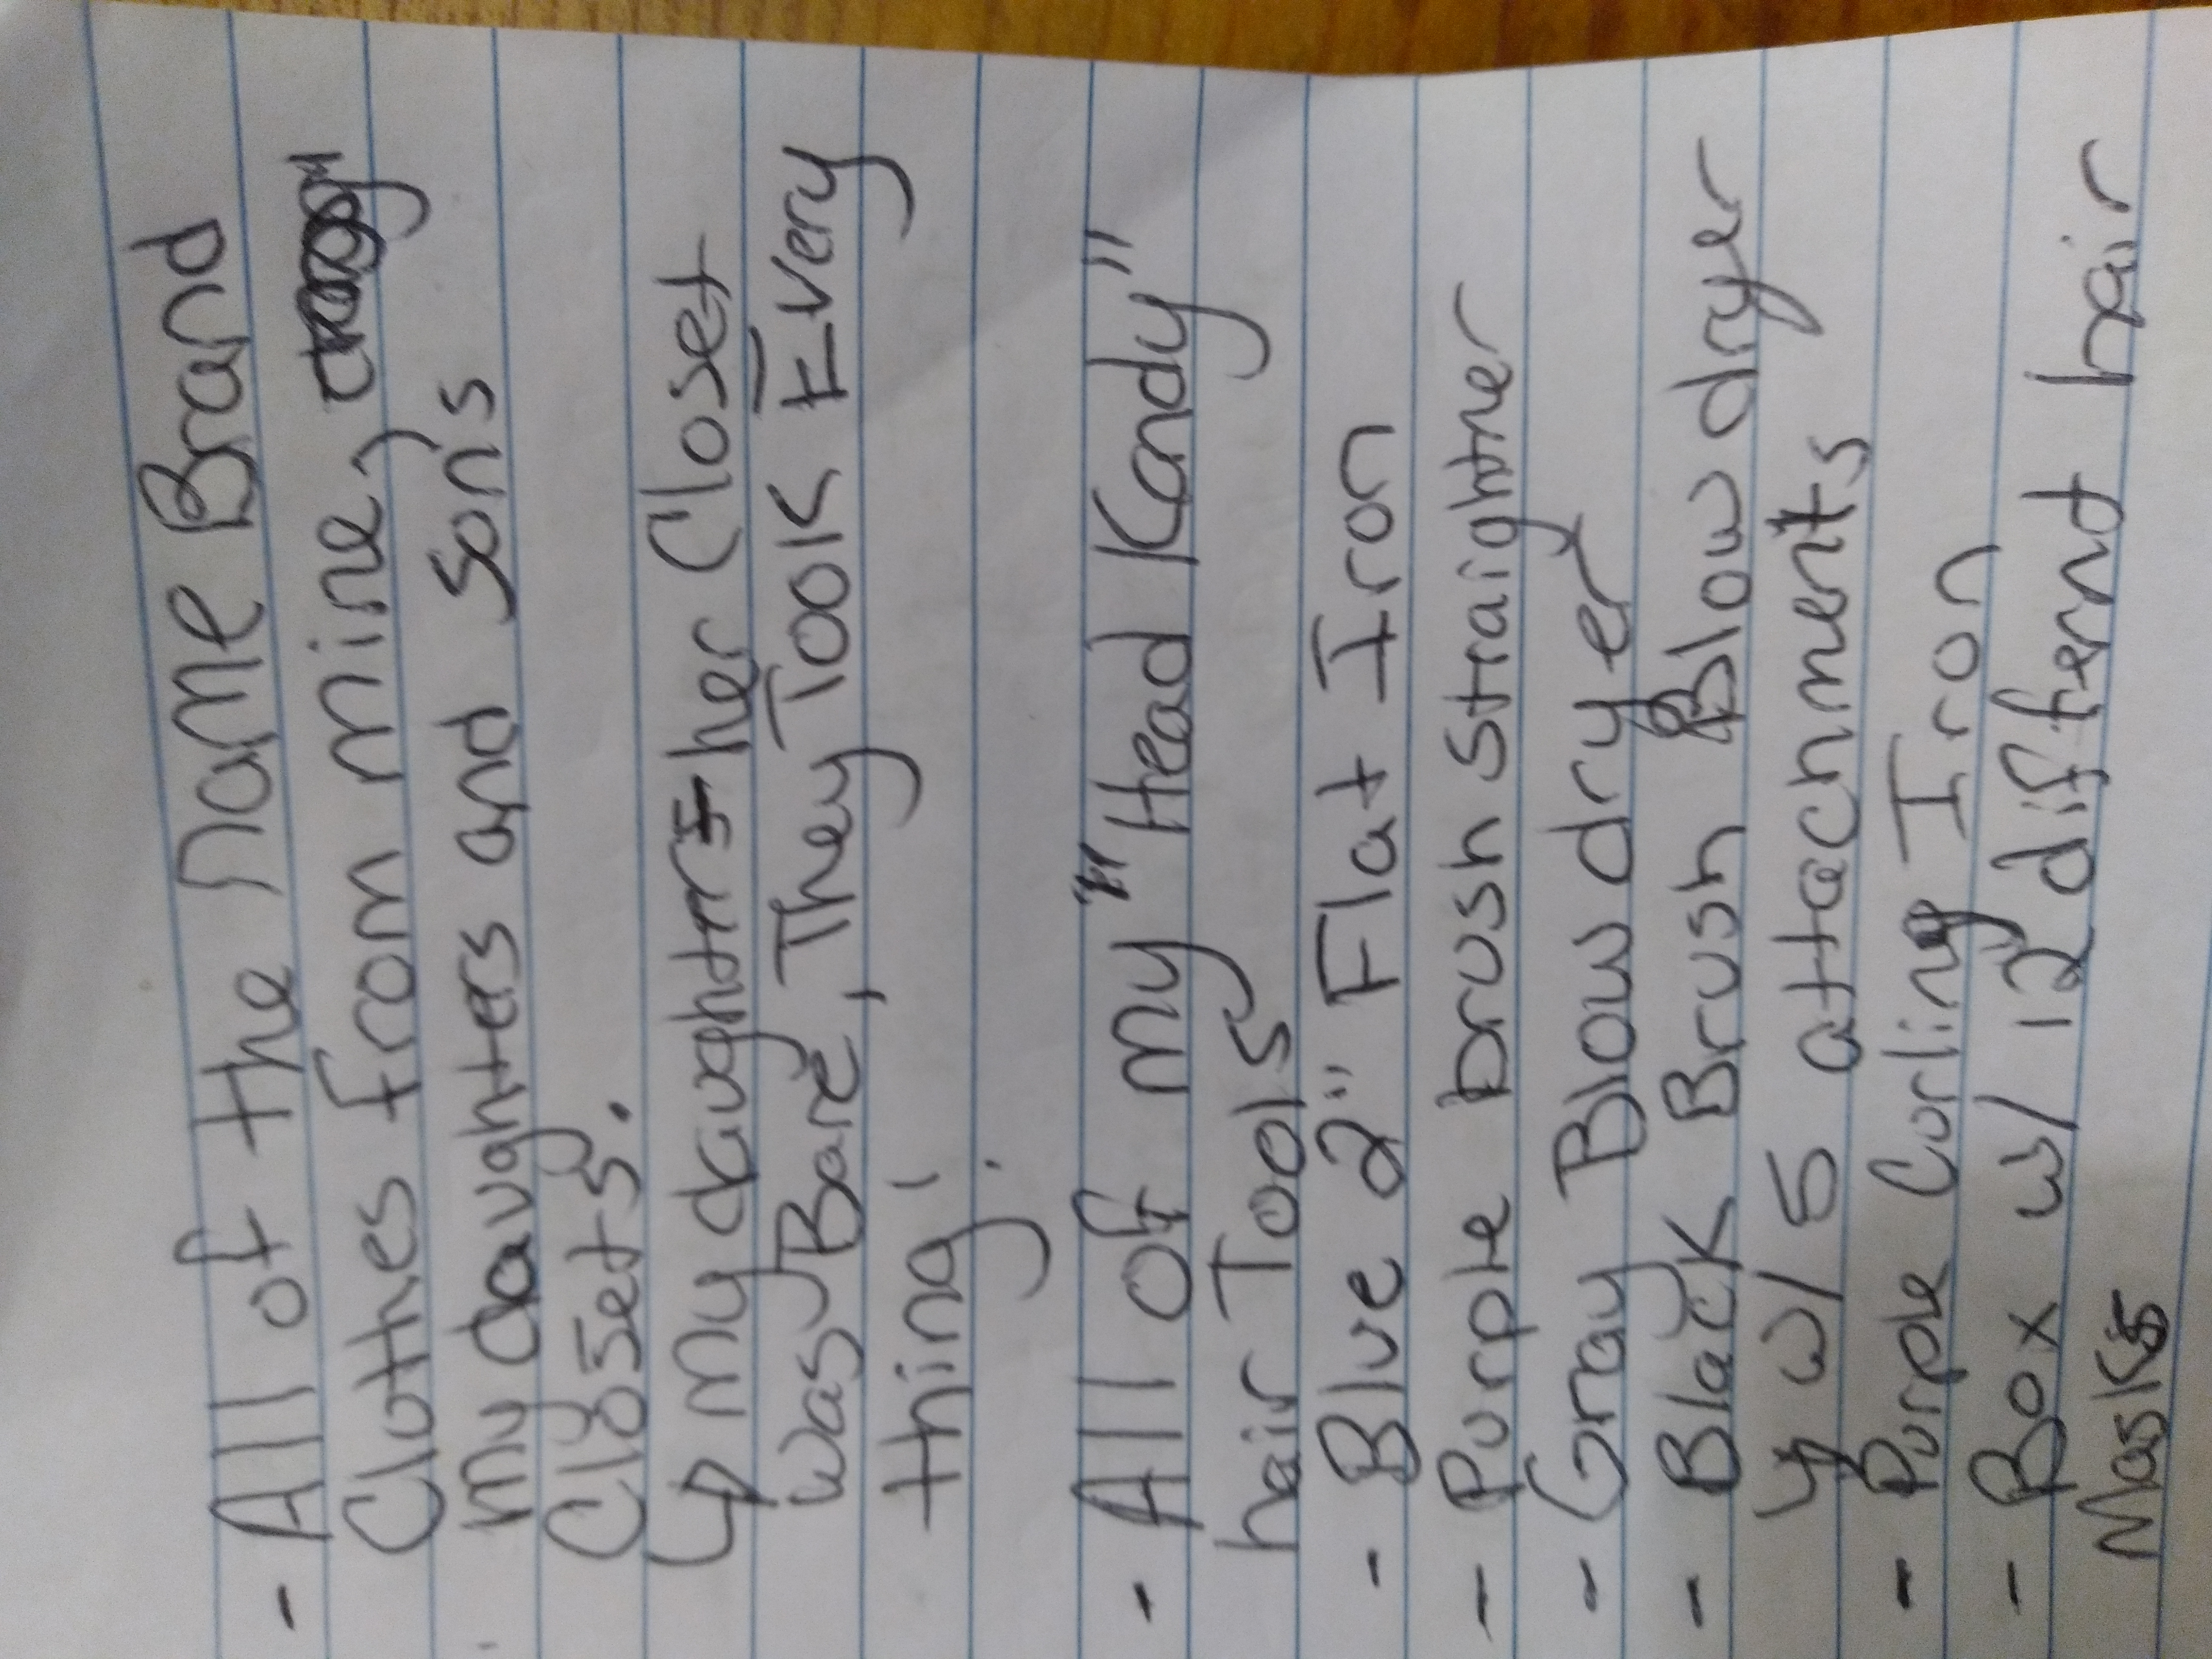 - All of the name Brand
Clothes from mine,
my daughters and sons
Closets.
↳ my daughtrs her Closet
was Bare, They Took Every
thing!
- All of my "Head Kandy"
hair Tools
- Blue 2" Flat Iron
- Purple brush straightner
- Gray Blow dryer
- Black Brush Blow dryer
↳ w/ 5 attachments
- Purple Curling Iron
- Box w/ 12 differnt hair
Masks